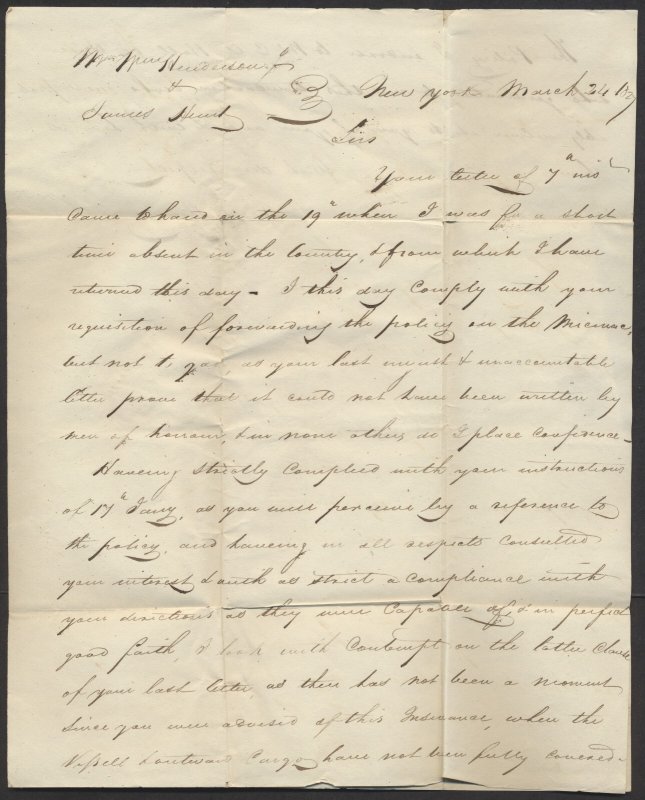 Henderson
&
James Hunt
New York March 24
Sirs
Your letter of 7th inst
came to hand on the 19th when I was for a short
time absent in the Country, & from which I have
returned this day - I this day comply with your
requisition of forwarding the policy on the Micmac,
but not to you, as your last unjust & unaccountable
letter prove that it could not have been written by
men of honour, & in none others do I place confidence -
Haveing strictly complied with your instructions
of 17th Jany, as you will perceive by a reference to
the policy, and haveing in all respects consulted
your interest & with as strict a compliance with
your directions as they were capable of, & in perfect
good faith, I look with Contempt on the latter Clause
of your last letter, as there has not been a moment
since you were advised of this Insurance, when the
Vessell & outward Cargo have not been fully covered -